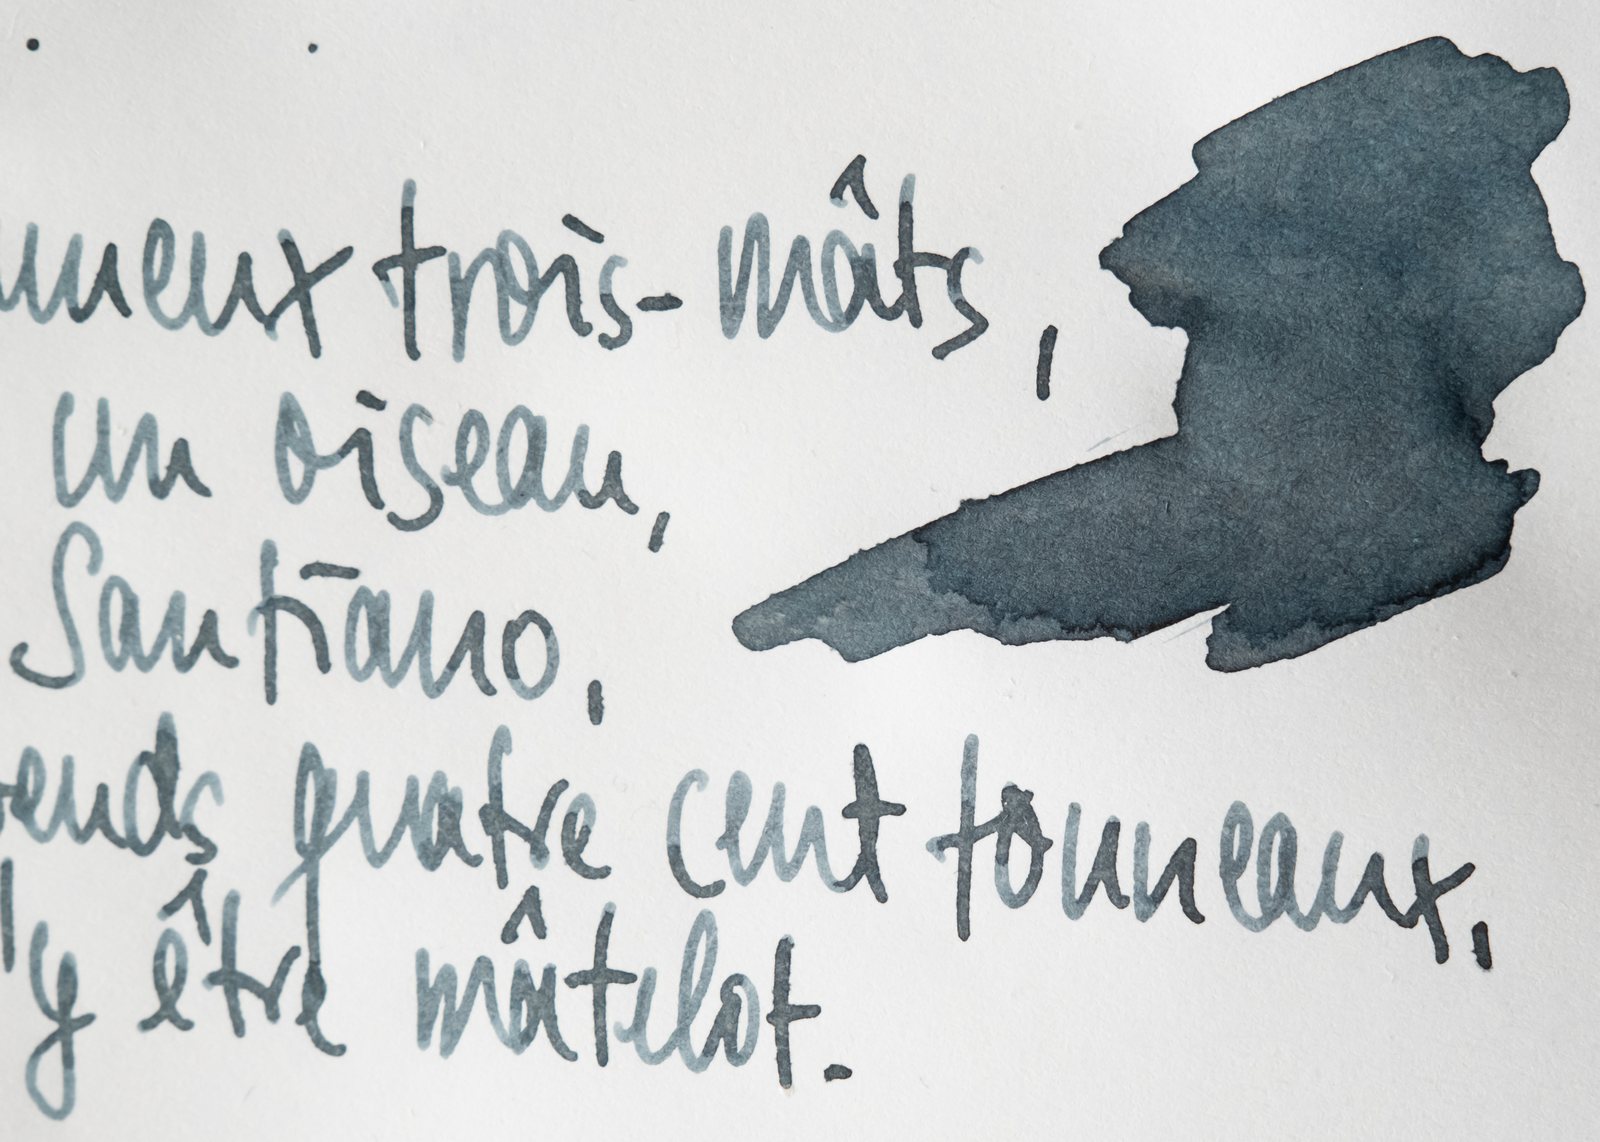 meux trois-mâts,
un oiseau,
Santiano,
ends quatre cent tonneaux,
y être mâtelot.